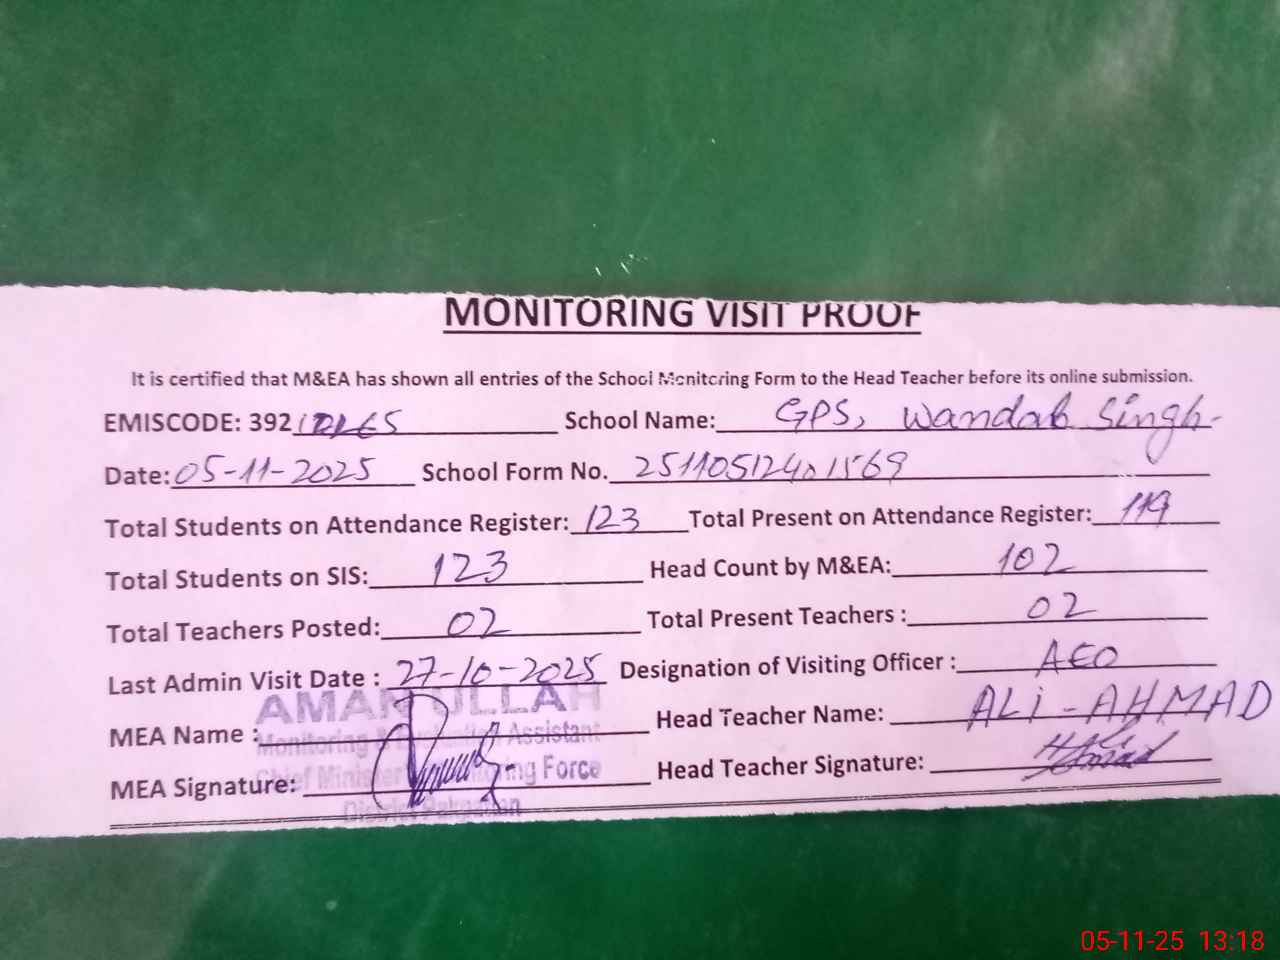 MONITORING VISIT PROOF
It is certified that M&EA has shown all entries of the School Monitoring Form to the Head Teacher before its online submission.
EMISCODE: 392 School Name: GPS, Wandab Singh-
Date: 05-11-2025 School Form No. 2511051240 1569
Total Students on Attendance Register: 123 Total Present on Attendance Register: 119
Total Students on SIS: 123 Head Count by M&EA: 102
Total Teachers Posted: 02 Total Present Teachers : 02
Last Admin Visit Date : 27-10-2025 Designation of Visiting Officer : AEO
AMANULLAH
MEA Name : Head Teacher Name: ALi - AHMAD
Monitoring & Evaluation Assistant
MEA Signature: Head Teacher Signature:
Chief Minister Monitoring Force
District Pakpattan
05-11-25 13:18